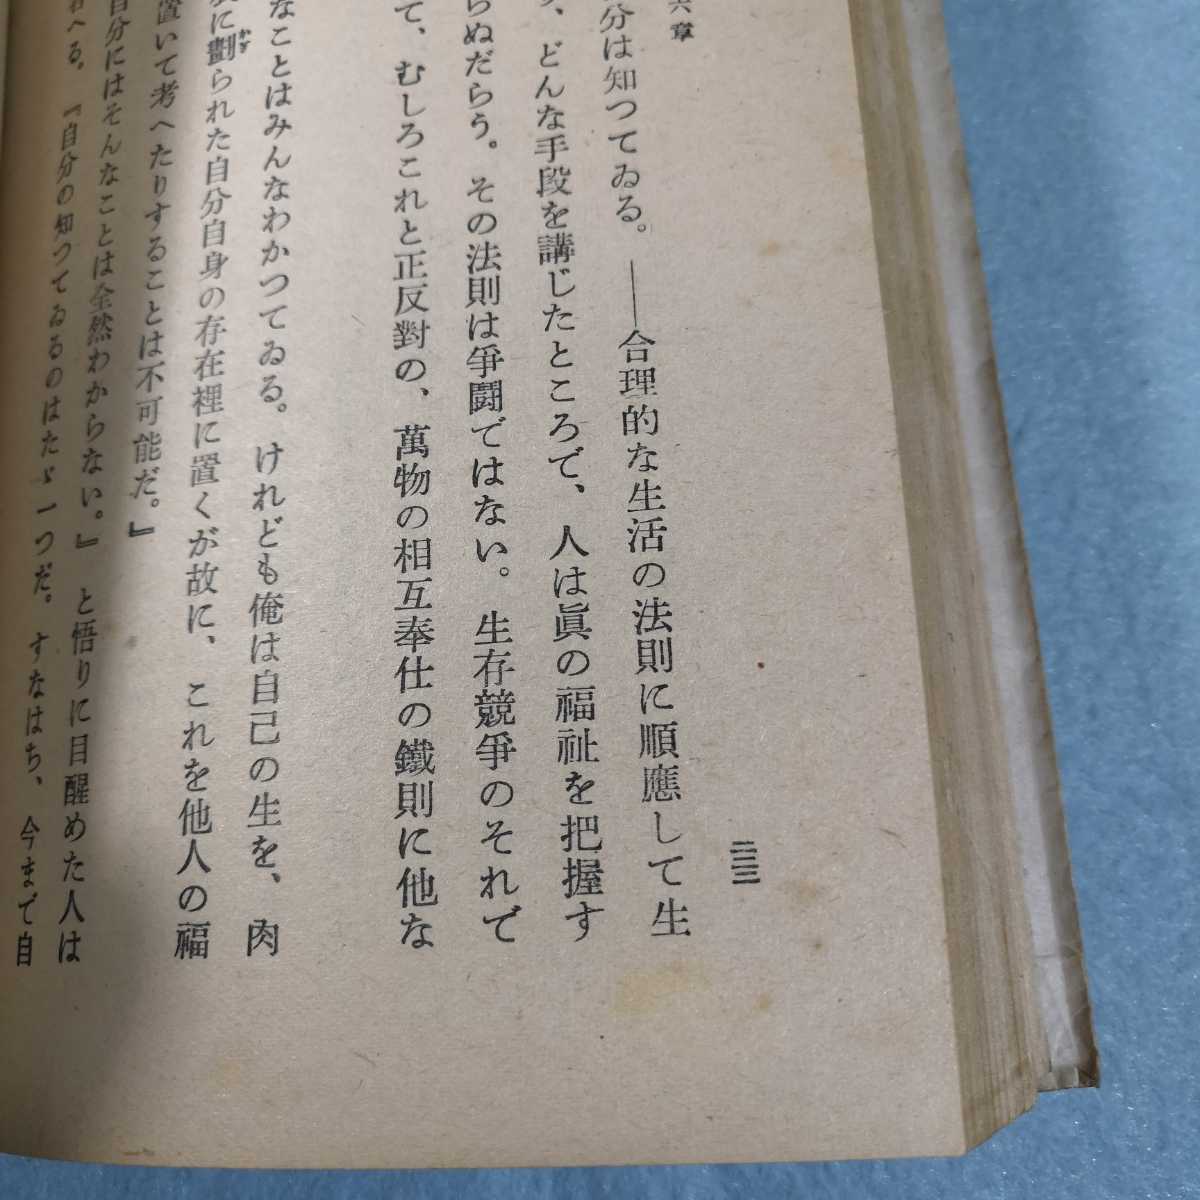 六章
分は知つてゐる。――合理的な生活の法則に順應して生
、どんな手段を講じたところで、人は眞の福祉を把握す
らぬだらう。その法則は爭鬪ではない。生存競爭のそれで
て、むしろこれと正反對の、萬物の相互奉仕の鐵則に他な
なことはみんなわかつてゐる。けれども俺は自己の生を、肉
に劃られた自分自身の存在裡に置くが故に、これを他人の福
かぎ
置いて考へたりすることは不可能だ。』
自分にはそんなことは全然わからない。』と悟りに目醒めた人は
へる。『自分の知つてゐるのはたゞ一つだ。すなはち、今まで自
二三三